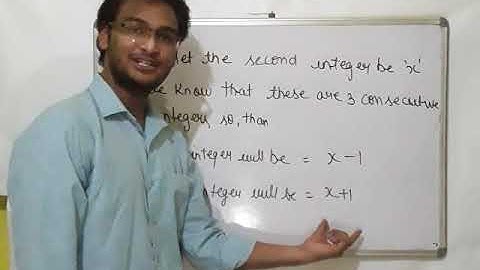 let the second integer be 'x'
know that these are 3 consecutive
so, than
integer will be = x-1
will be = x+1